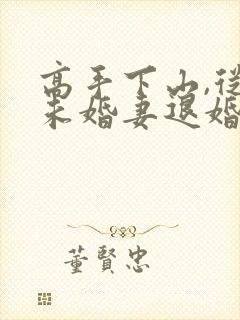 高手下山,從
未婚妻退婚
董賢忠